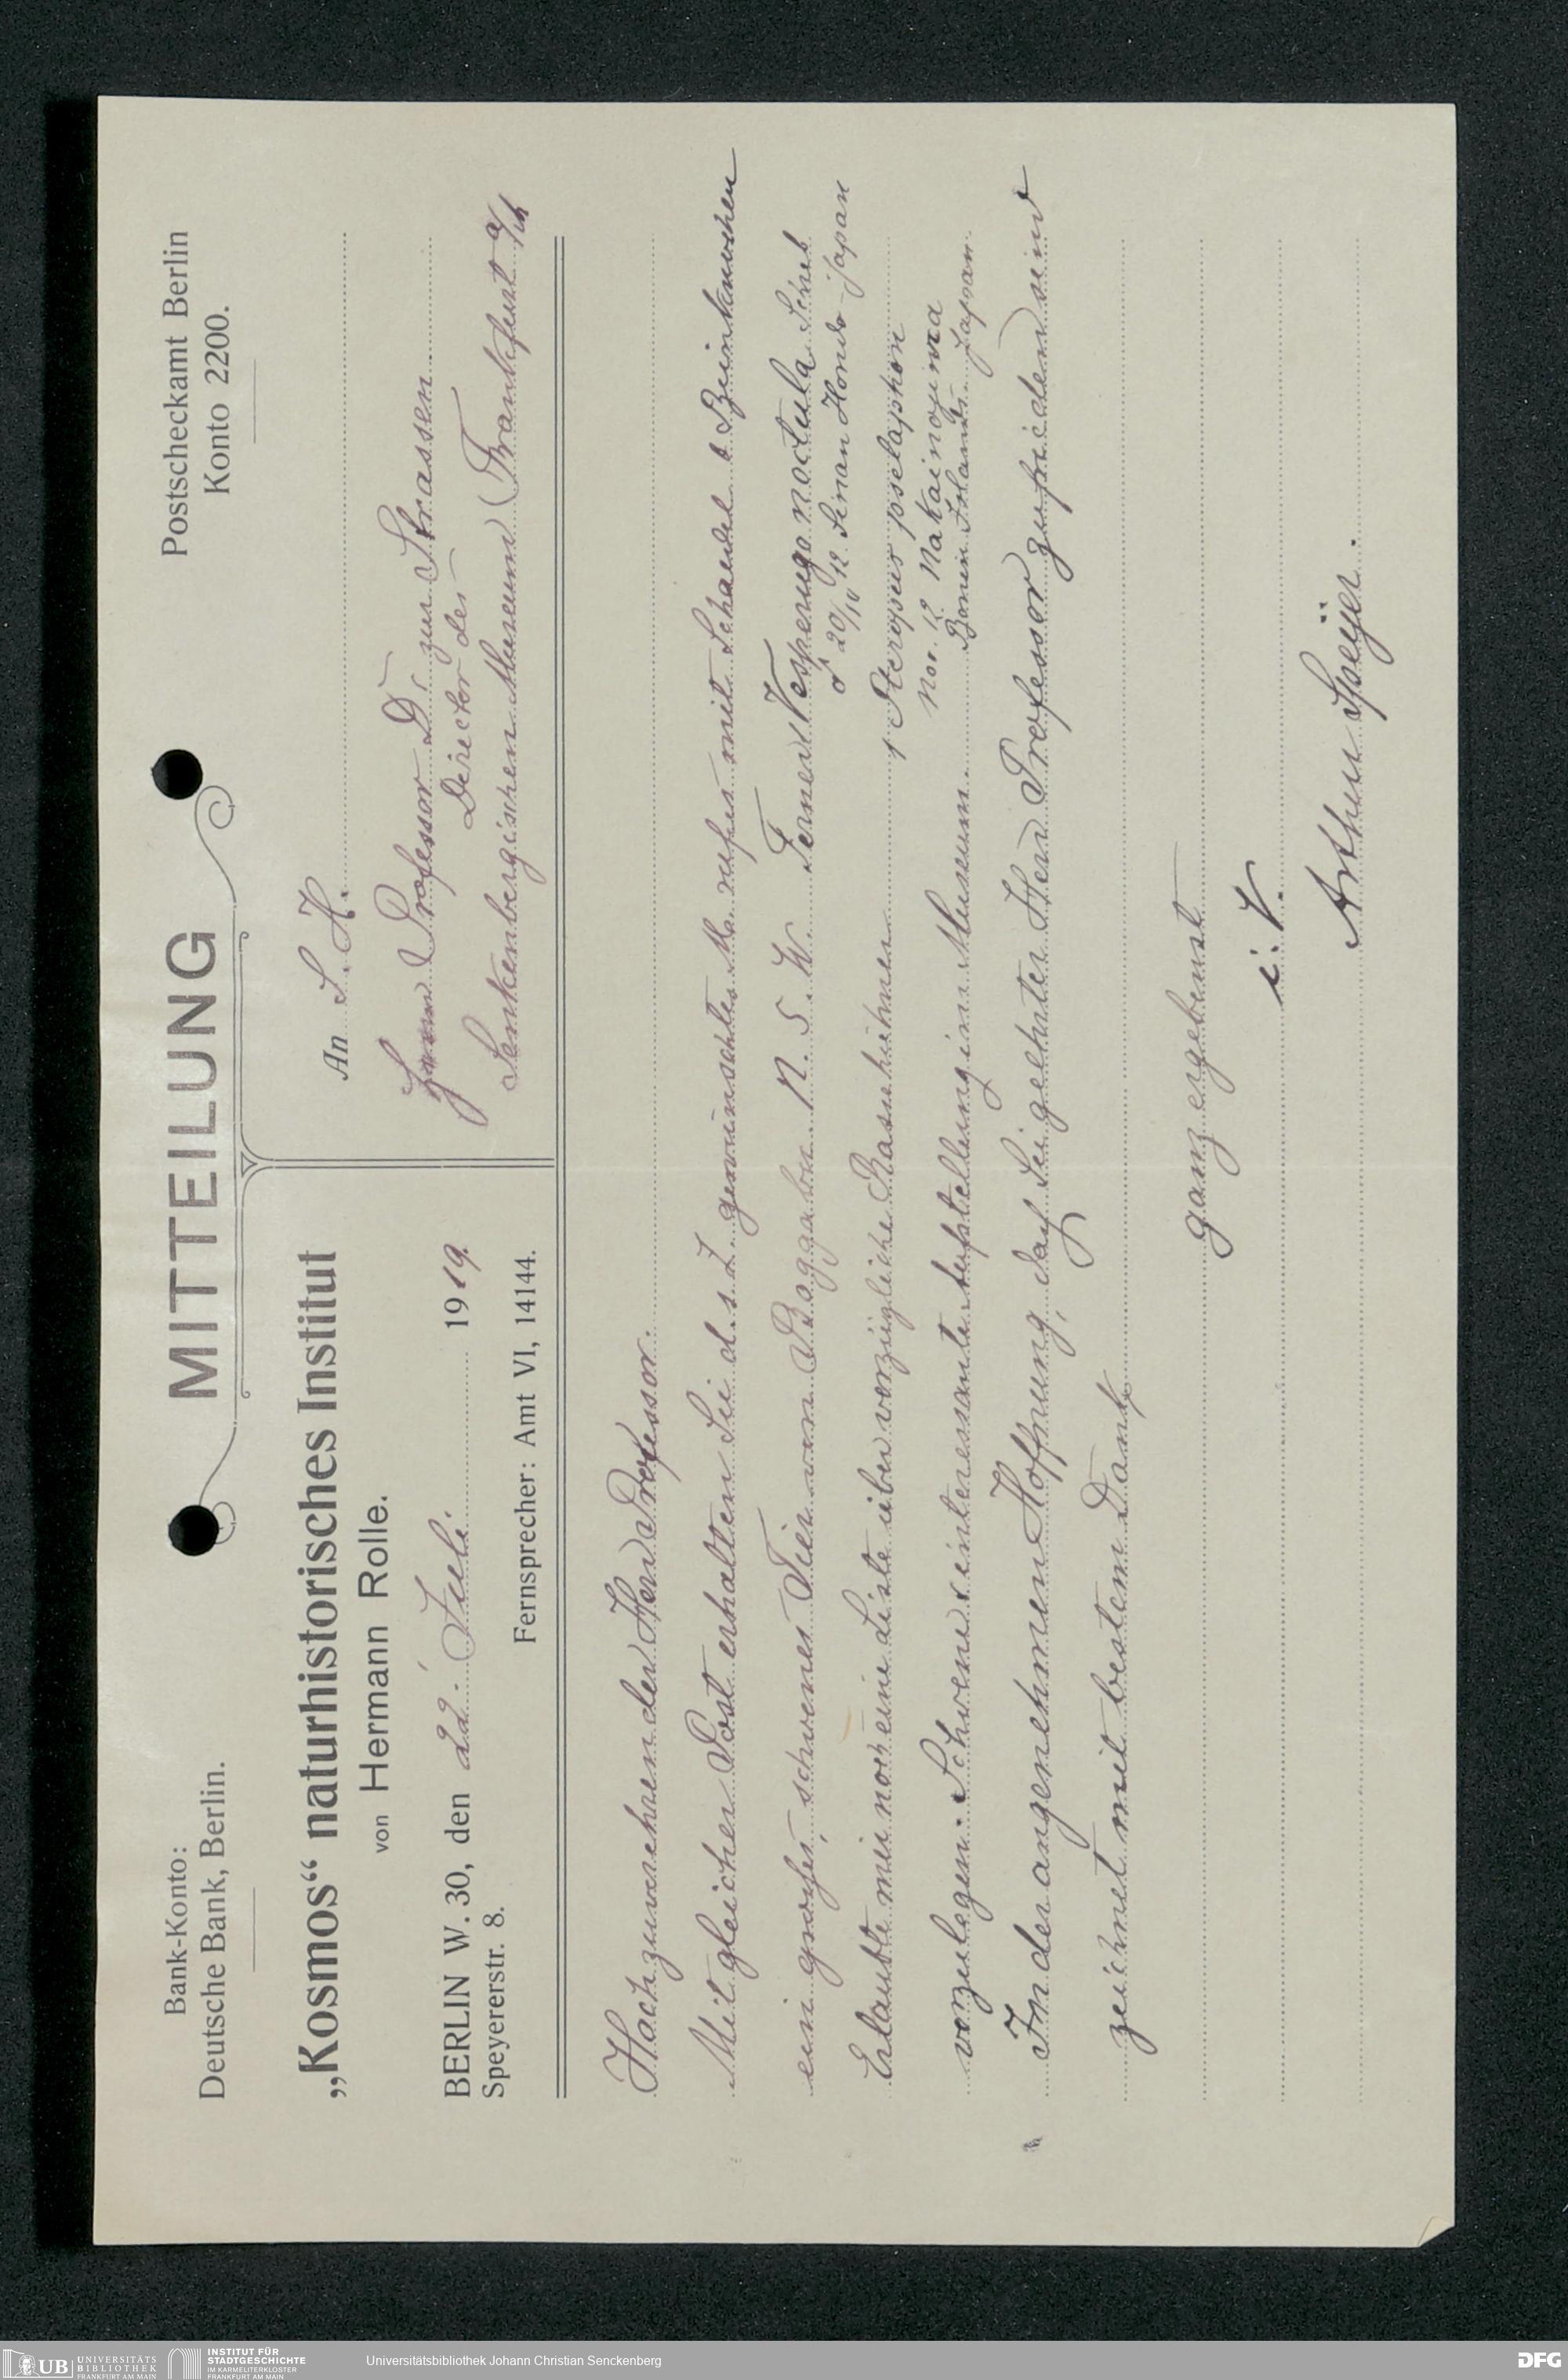 MITTEILUNG
Bank-Konto:
Deutsche Bank, Berlin.
Postscheckamt Berlin
Konto 2200.
„Kosmos“ naturhistorisches Institut
von Hermann Rolle.
BERLIN W. 30, den 22. Juli 1919.
Speyererstr. 8.
Fernsprecher: Amt VI, 14144.
An S. H.
Herrn Professor Dr. zur Strassen
Director des
Senkenbergischen Museum Frankfurt a/M
Hochzuverehrender Herr Professor.
Mit gleicher Post erhalten Sie d. s. Z. gewünschtes Ma. rufus mit Schaedel & Beinknochen
ein großes, schoenes Tier von Boggabri N. S. W. Ferner 1 Vesperugo noctula Schreb
♂ 20/IV 12. Sinan Hondo Japan
Erlaubte mir noch eine Liste über vorzügliche Kasuhühner
1 Pteropus pselaphon
Nov. 12 Nakainojima
Bonin Islands Japan
vorzulegen. Schoene & interessante Aufstellung im Museum.
In der angenehmen Hoffnung, daß Sie geehrter Herr Professor zufrieden sind
zeichnet mit bestem Dank
ganz ergebenst
i. V.
Arthur Speÿer.
UB UNIVERSITÄTS
BIBLIOTHEK
FRANKFURT AM MAIN
INSTITUT FÜR
STADTGESCHICHTE
IM KARMELITERKLOSTER
FRANKFURT AM MAIN
Universitätsbibliothek Johann Christian Senckenberg
DFG